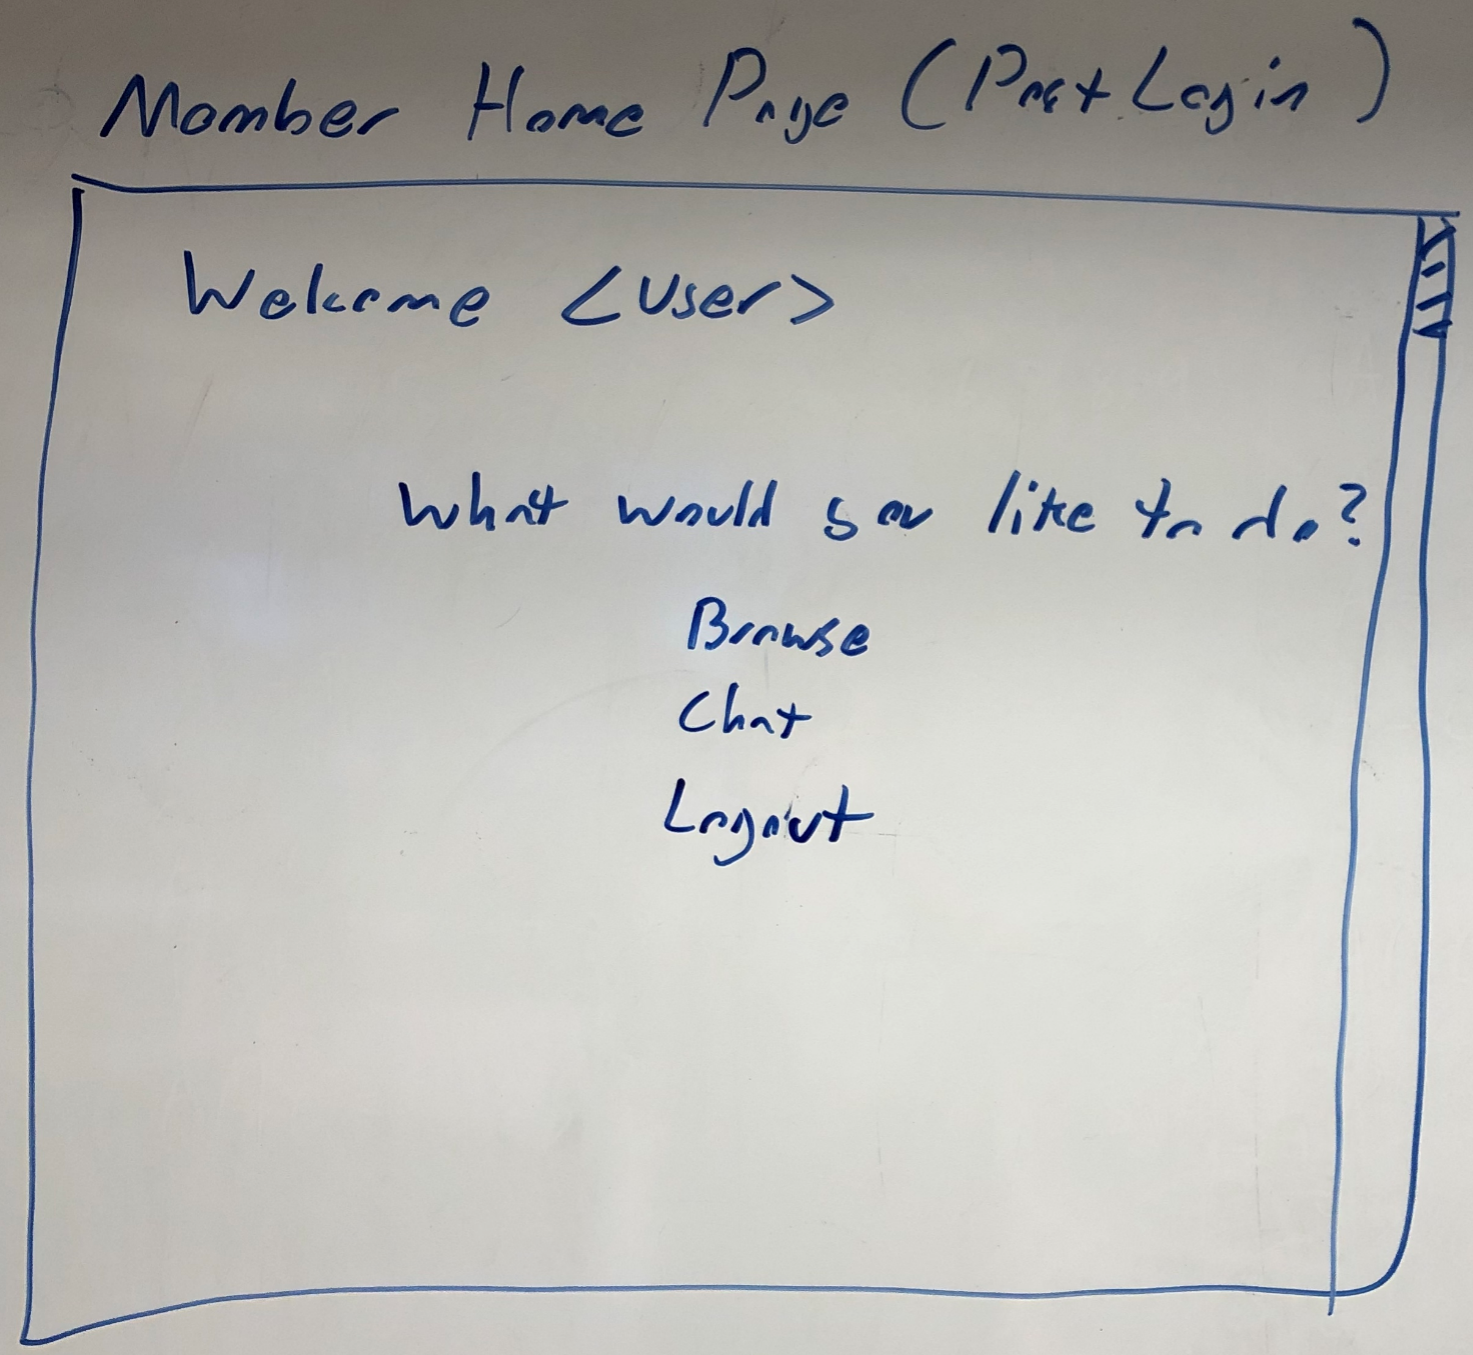 Member Home Page (Post Login)
Welcome <user>
What would you like to do?
Browse
Chat
Logout